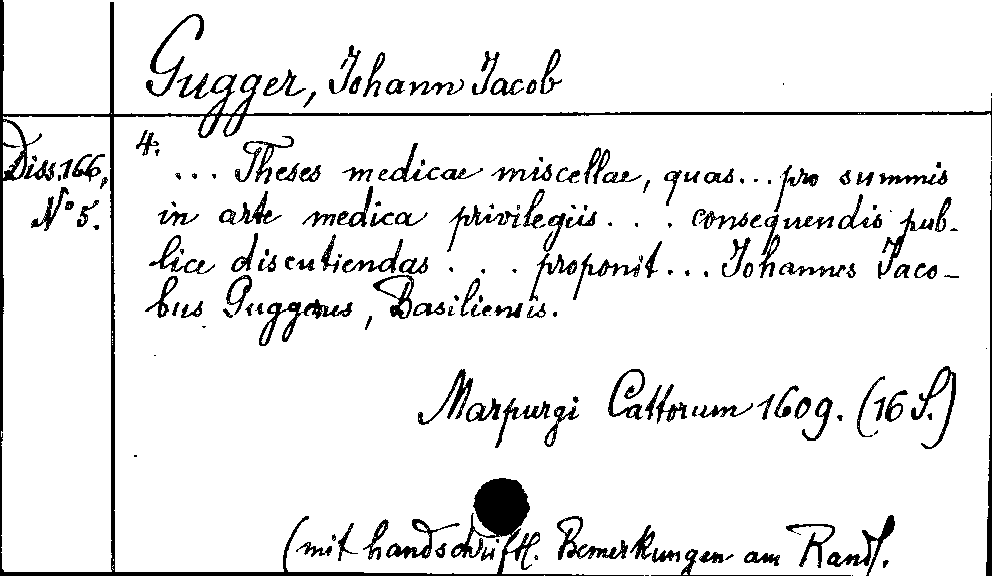 Gugger, Johann Jacob
Diss. 166,
No 5.
4.
... Theses medicae miscellae, quas... pro summis
in arte medica privilegiis . . . consequendis pub-
lice discutiendas . . . proponit ... Johannes Jaco-
bus Guggerus, Basiliensis.
Marpurgi Cattorum 1609. (16 S.)
(mit handschriftl. Bemerkungen am Rand).